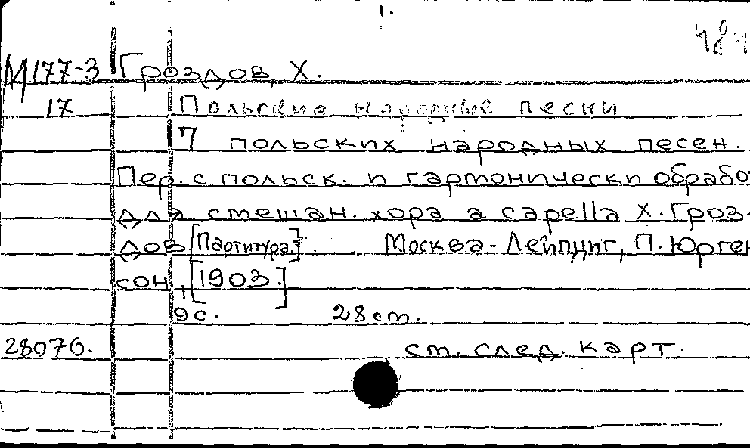 1.
М177-3 Гроздов, Х.
17 Польские народные песни
7 польских народных песен.
Пер. с польск. и гармонически обрабо
для смешан. хора a capella Х. Гроз-
дов [Партитура.] Москва-Лейпциг, П. Юрген
сон, [1903.]
9с. 28 ст.
28070. ст. след. карт.